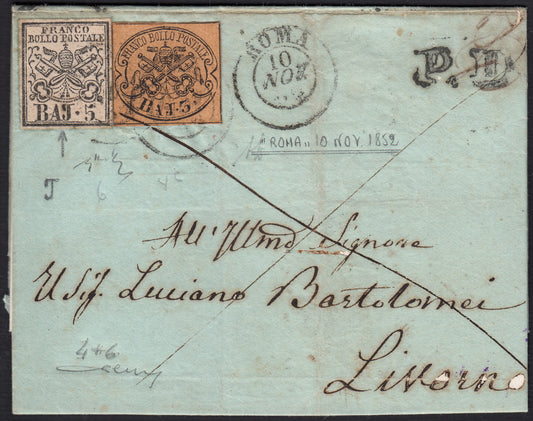 FRANCO
BOLLO POSTALE
BAJ. 5.
FRANCO BOLLO POSTALE
BAJ. 3.
ROMA
10
NOV
P. D.
"ROMA" 10 NOV. 1852
J
6
4c
All' Illmo Signore
Il Sig. Luciano Bartolomei
4+6
Livorno